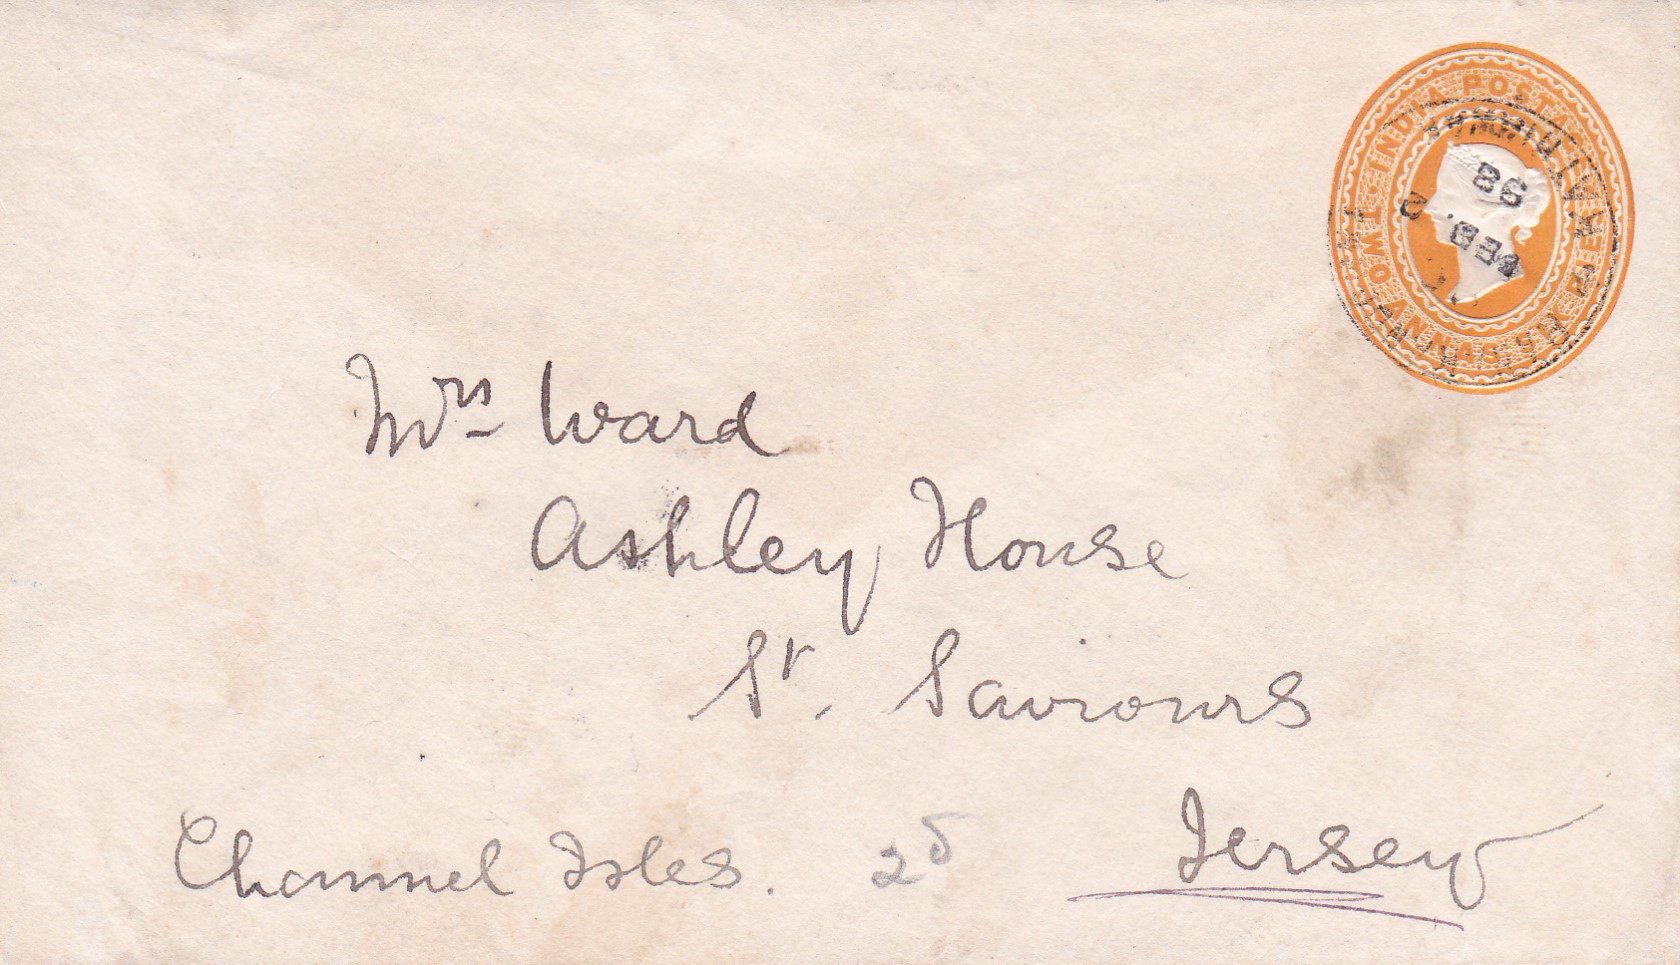 INDIA POSTAGE
TWO ANNAS SIX PIES
FEB. 98
Mrs Ward
Ashley House
St. Saviours
Channel Isles. 2d Jersey